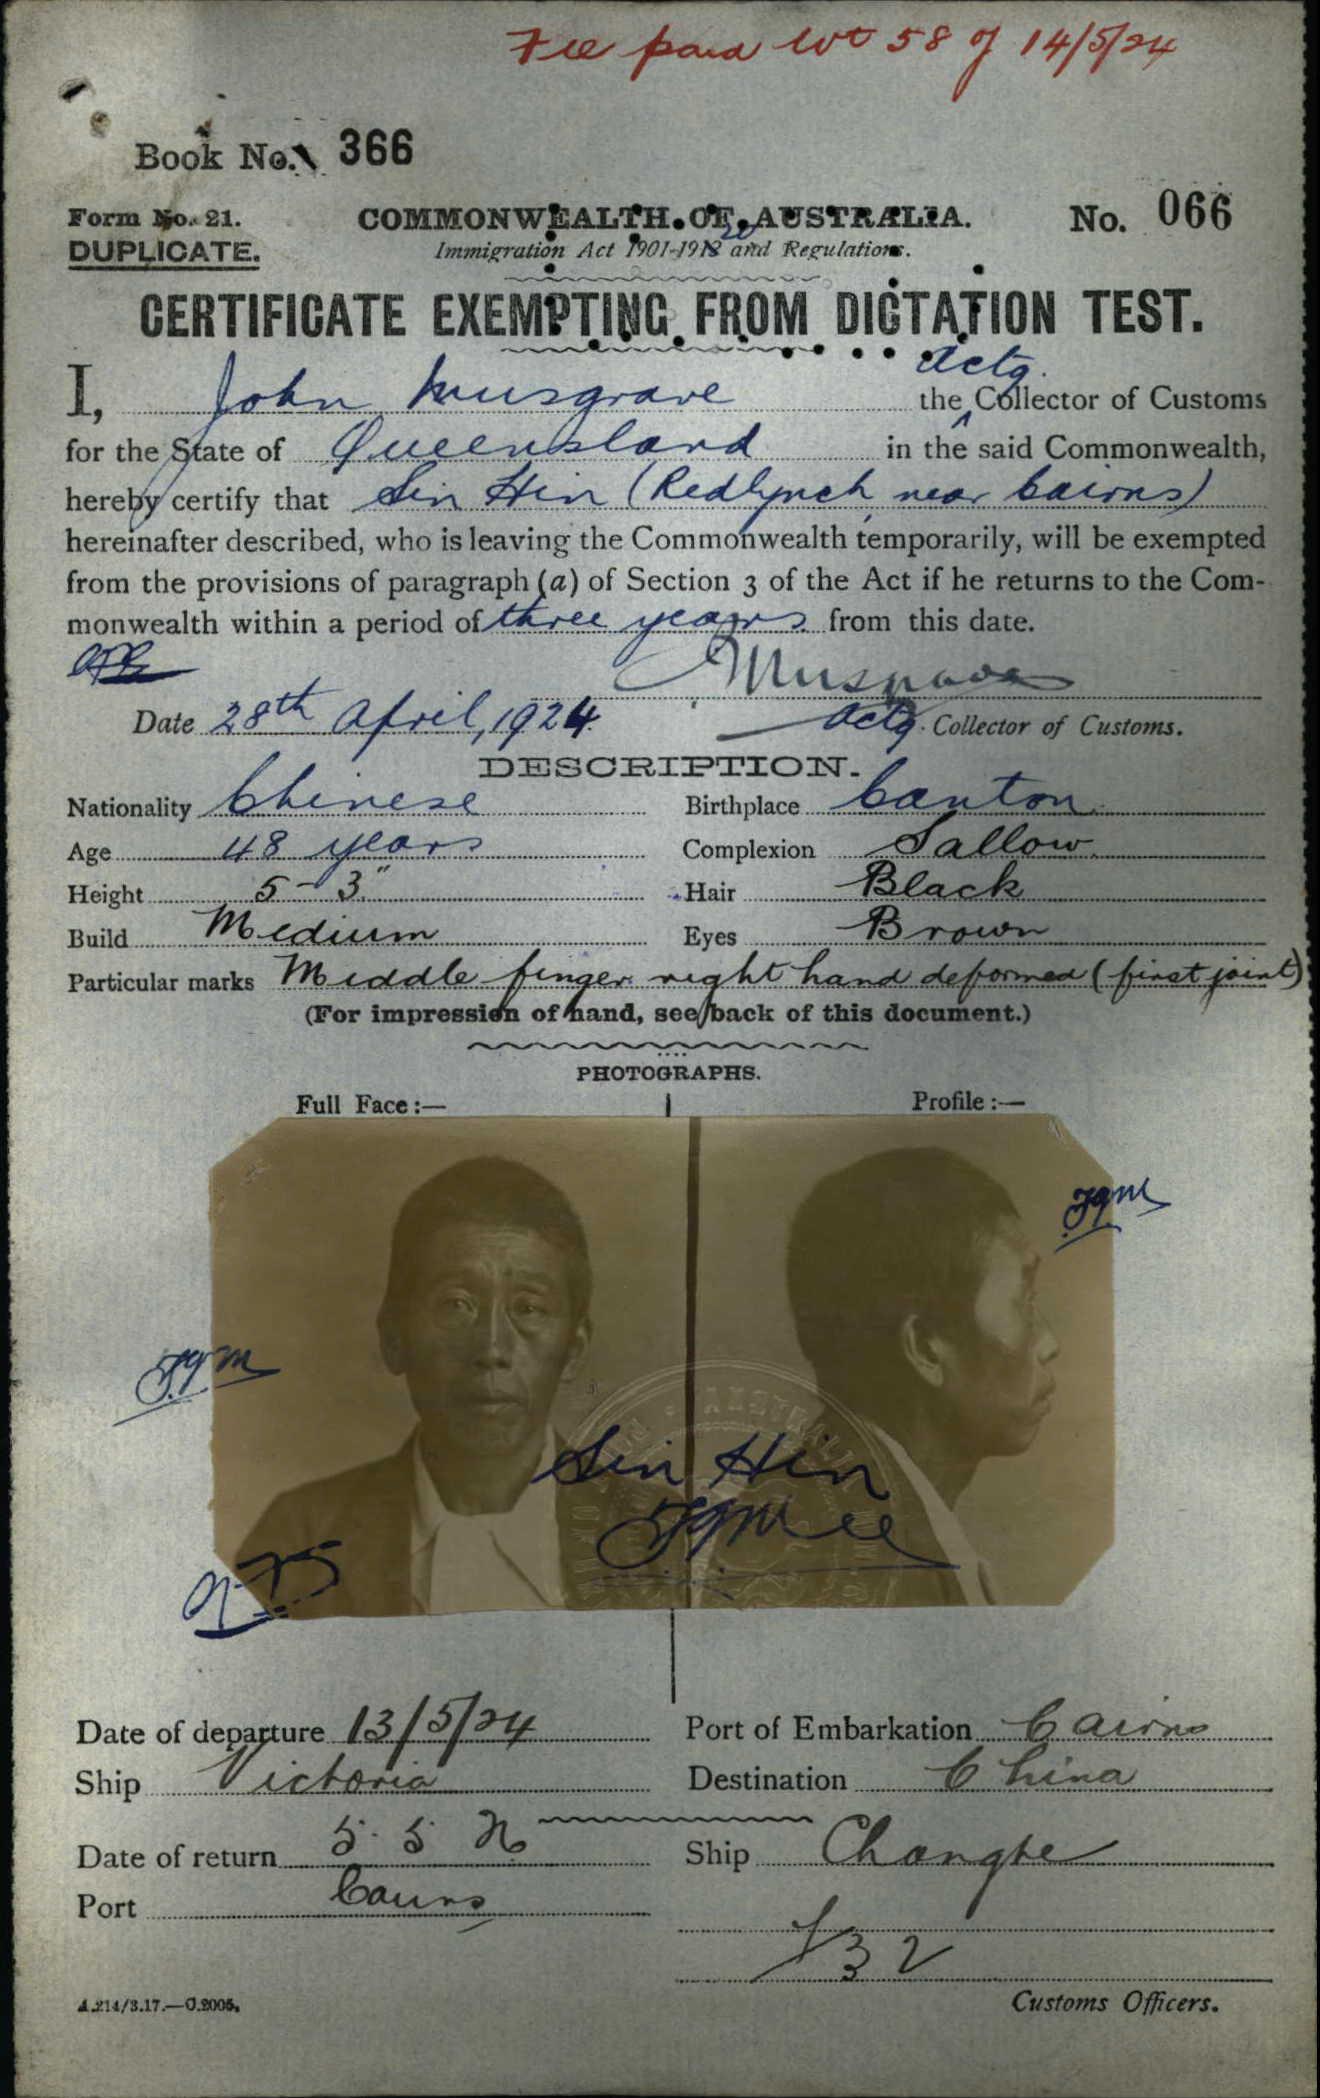 Fee paid 58 of 14/5/24
Book No. 366
Form No. 21.
COMMONWEALTH OF AUSTRALIA.
No. 066
DUPLICATE.
Immigration Act 1901-1912 20 and Regulations.
CERTIFICATE EXEMPTING FROM DICTATION TEST.
I, John Musgrave the Actg. Collector of Customs
for the State of Queensland in the said Commonwealth,
hereby certify that Sin Hin (Redlynch near Cairns)
hereinafter described, who is leaving the Commonwealth temporarily, will be exempted
from the provisions of paragraph (a) of Section 3 of the Act if he returns to the Com-
monwealth within a period of three years from this date.
J Musgrave
Date 28th April, 1924.
Actg. Collector of Customs.
DESCRIPTION.
Nationality Chinese Birthplace Canton
Age 48 years Complexion Sallow
Height 5-3" Hair Black
Build Medium Eyes Brown
Particular marks Middle finger right hand deformed (first joint)
(For impression of hand, see back of this document.)
PHOTOGRAPHS.
Full Face :— Profile :—
Sin Hin
Date of departure 13/5/24 Port of Embarkation Cairns
Ship Victoria Destination China
Date of return 5 5 26 Ship Changte
Port Cairns
A.214/3.17.—C.2005.
Customs Officers.